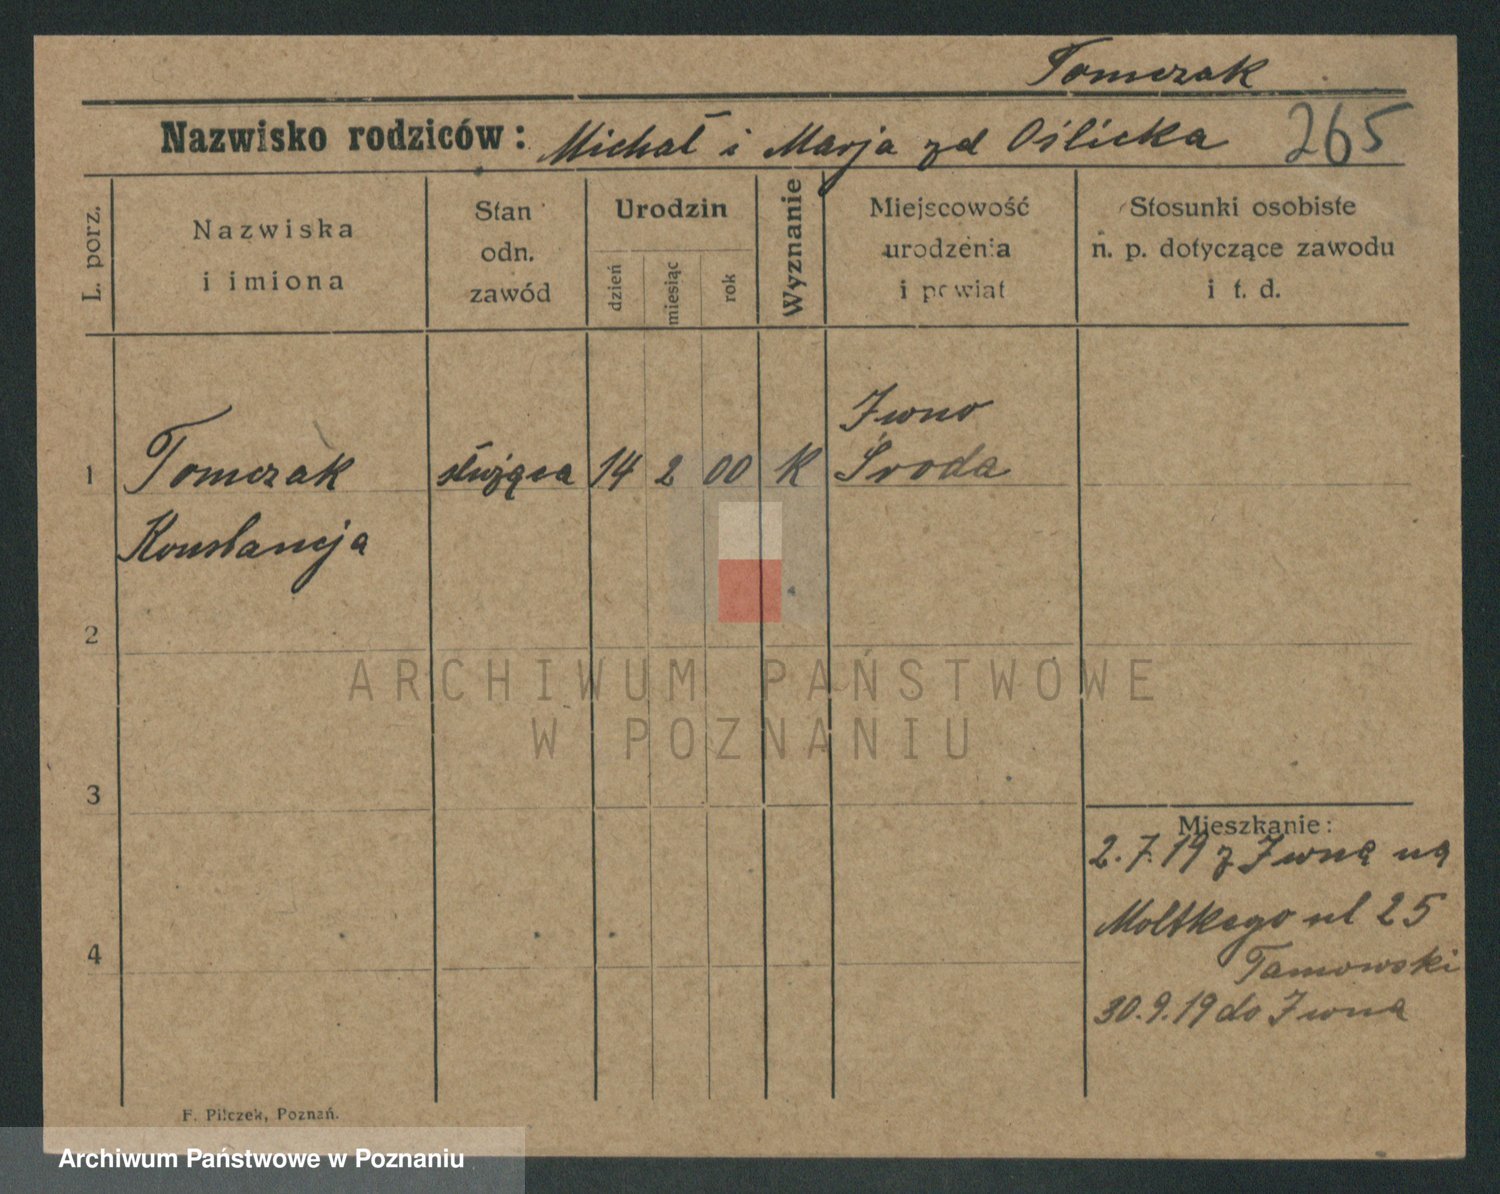 Tomczak
Nazwisko rodziców: Michał i Marja zd Oślicka 265
L. porz.
Nazwiska
i imiona
Stan
odn.
zawód
Urodzin
dzień
miesiąc
rok
Wyznanie
Miejscowość
urodzenia
i powiat
Stosunki osobiste
n. p. dotyczące zawodu
i t. d.
Iwno
1 Tomczak służąca 14 2 00 K Środa
Konstancja
2
ARCHIWUM PAŃSTWOWE
W POZNANIU
3
Mieszkanie:
2.7.19 z Iwna na
4
Moltkego ul 25
Tarnowski
30.9.19 do Iwna
F. Pilczek, Poznań.
Archiwum Państwowe w Poznaniu